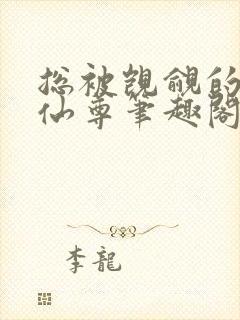 总被觊觎的
仙尊笔趣阁
李龍